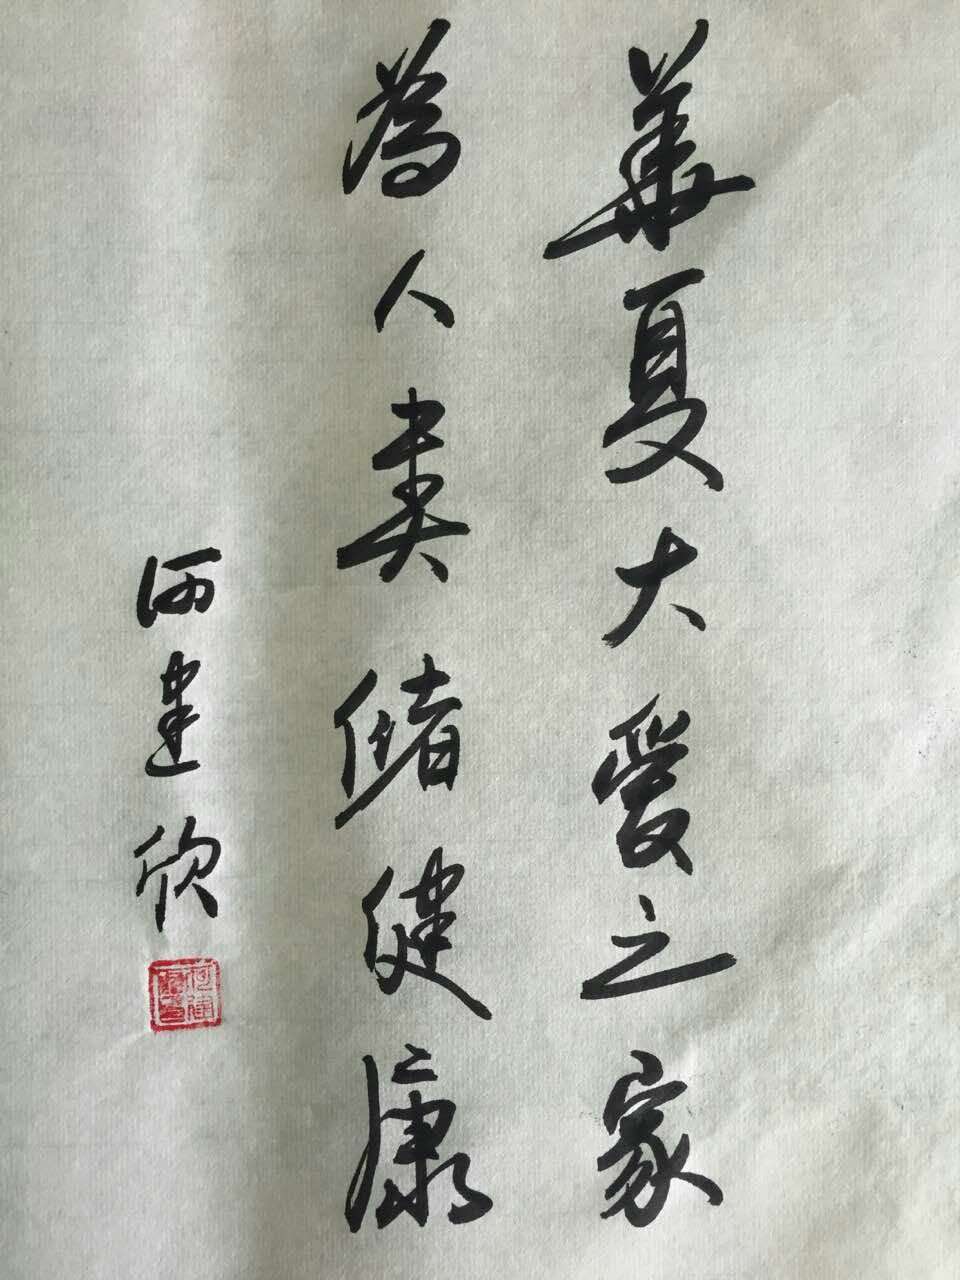 華夏大爱之家
為人类储健康
何建欣